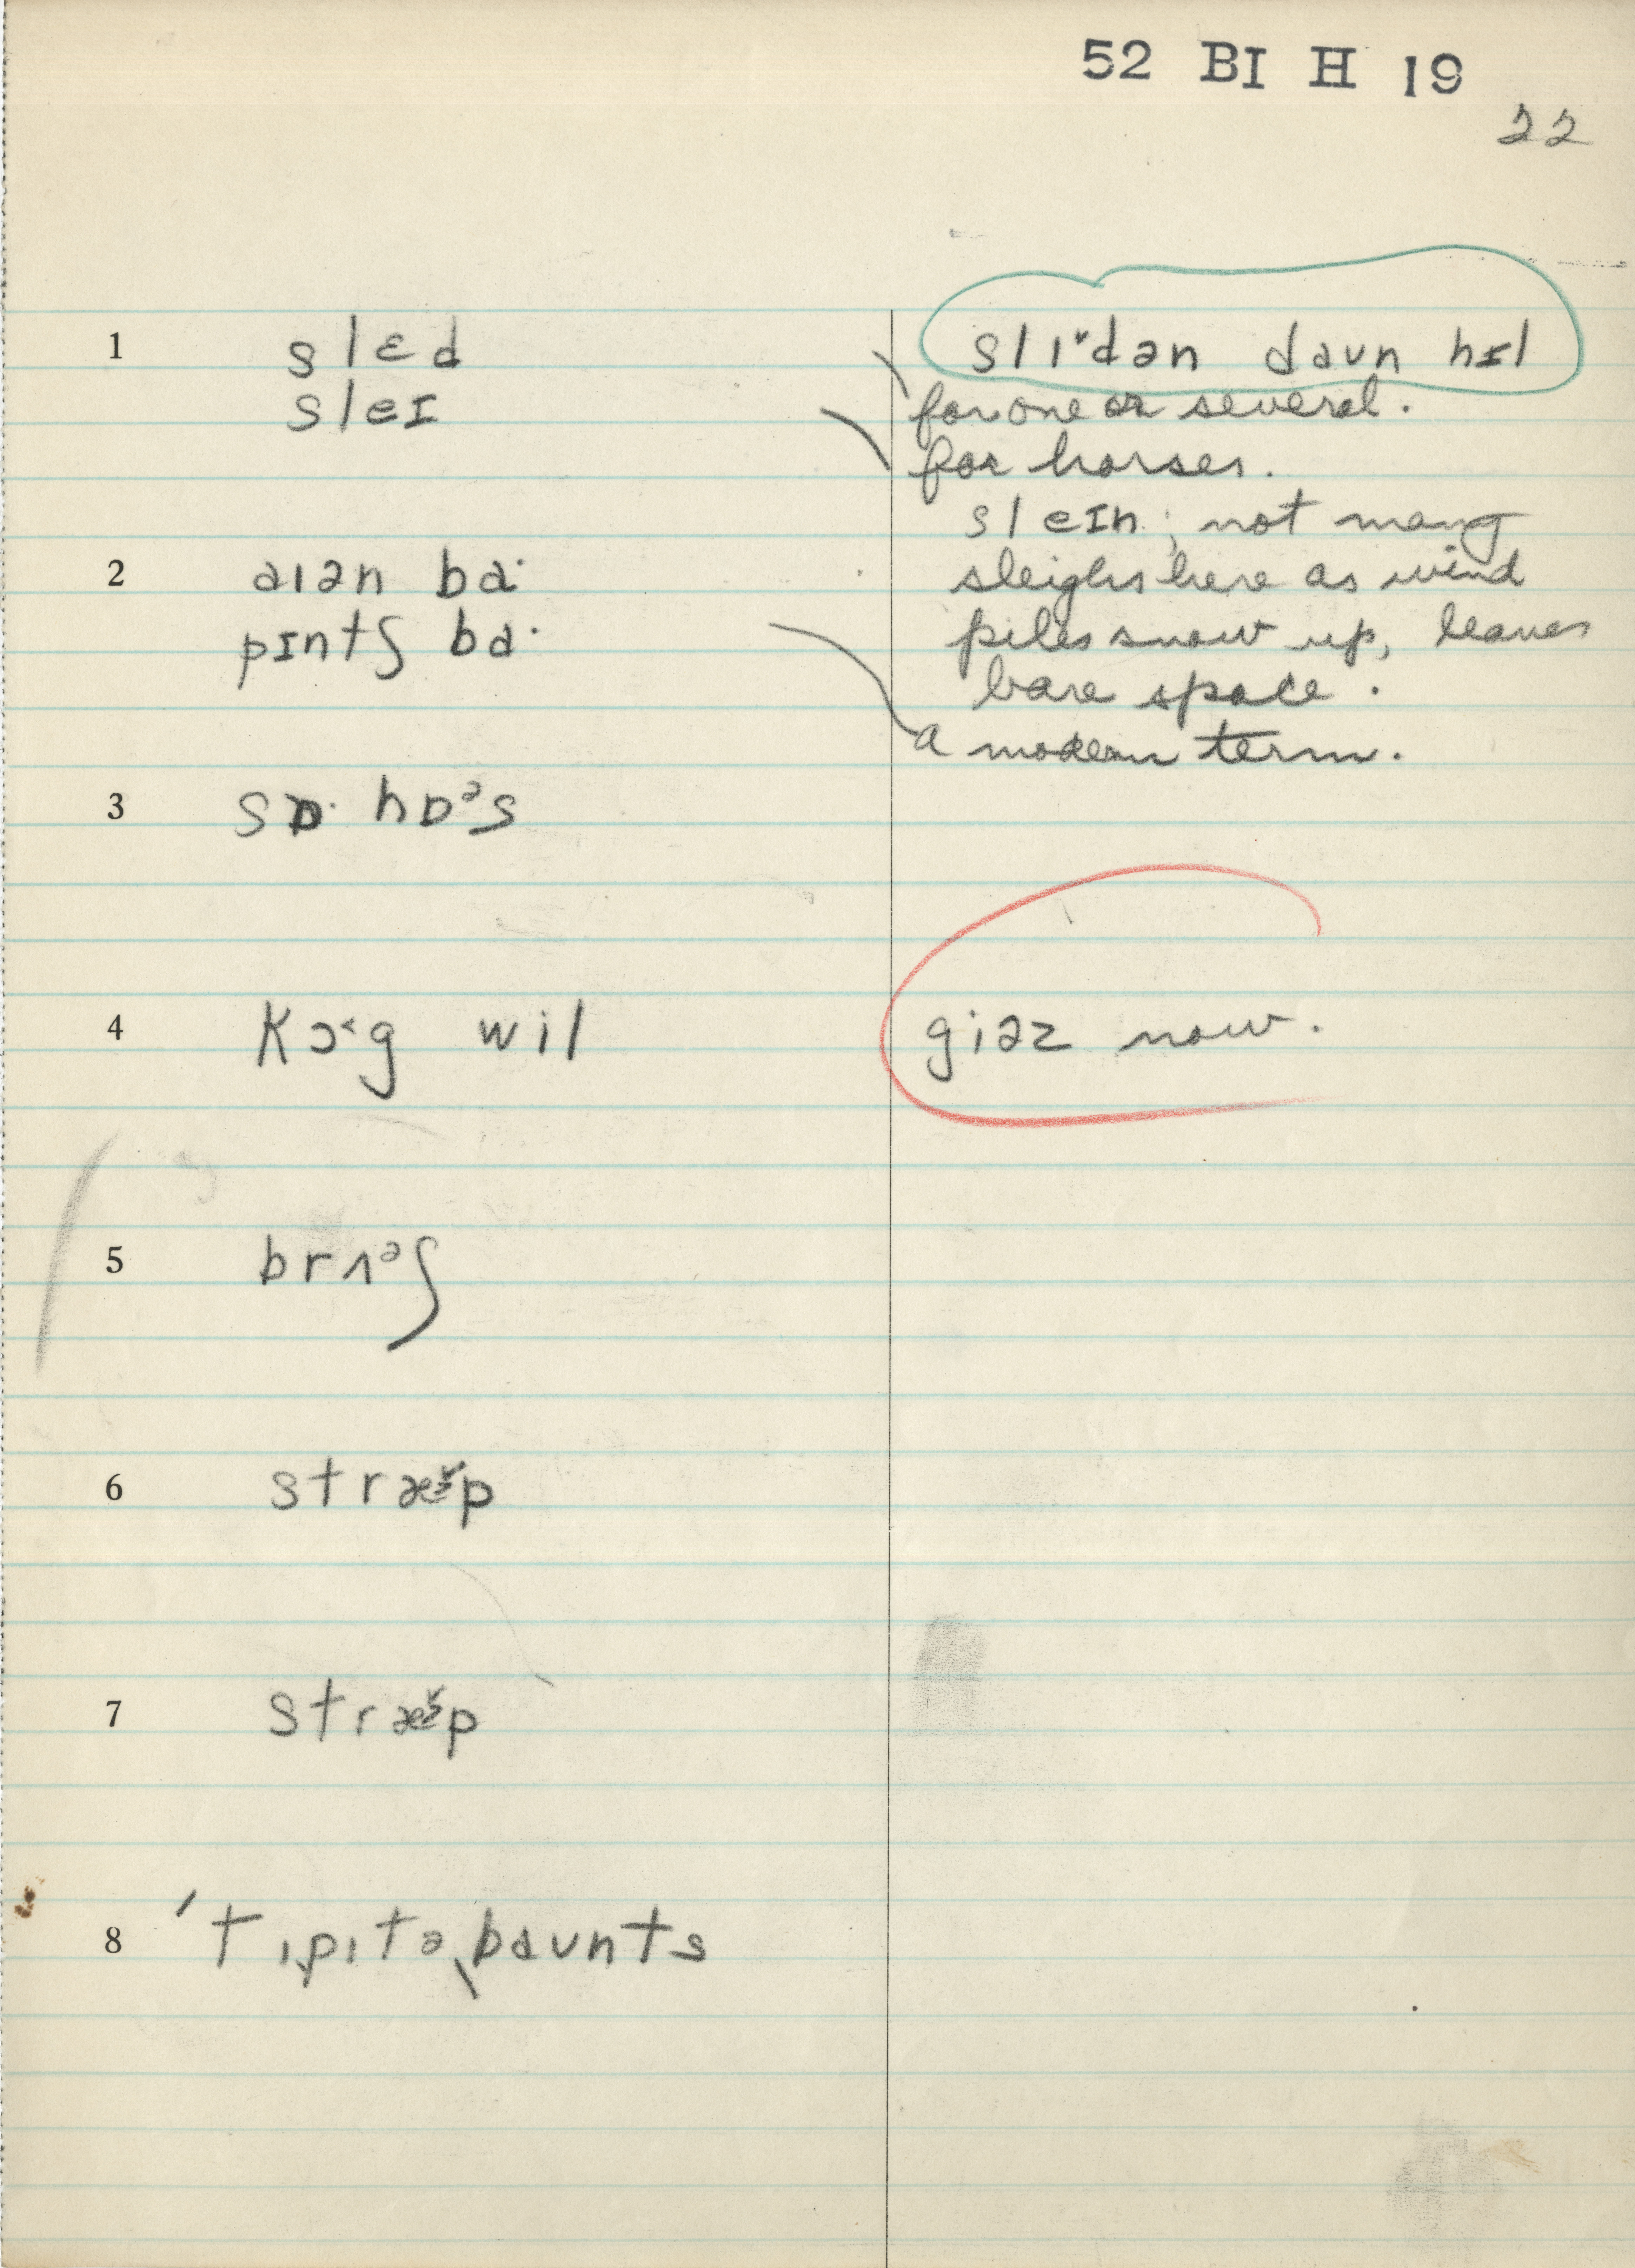 52 BI H 19
22
1 slɛd
sleɪ
slɪˇdən daʊn hɪl
for one or several.
for horses.
sleɪn; not many
sleighs here as wind
piles snow up, leaves
bare space.
2 aɪən ba·
pɪntʃ ba·
a modern term.
3 sɒ· hɒᵊs
4 kɔ˂g wil
giəz now.
5 brʌᵊʃ
6 stræ̌p
7 stræ̌p
8 ˈtɪpɪtəˌbaʊnts